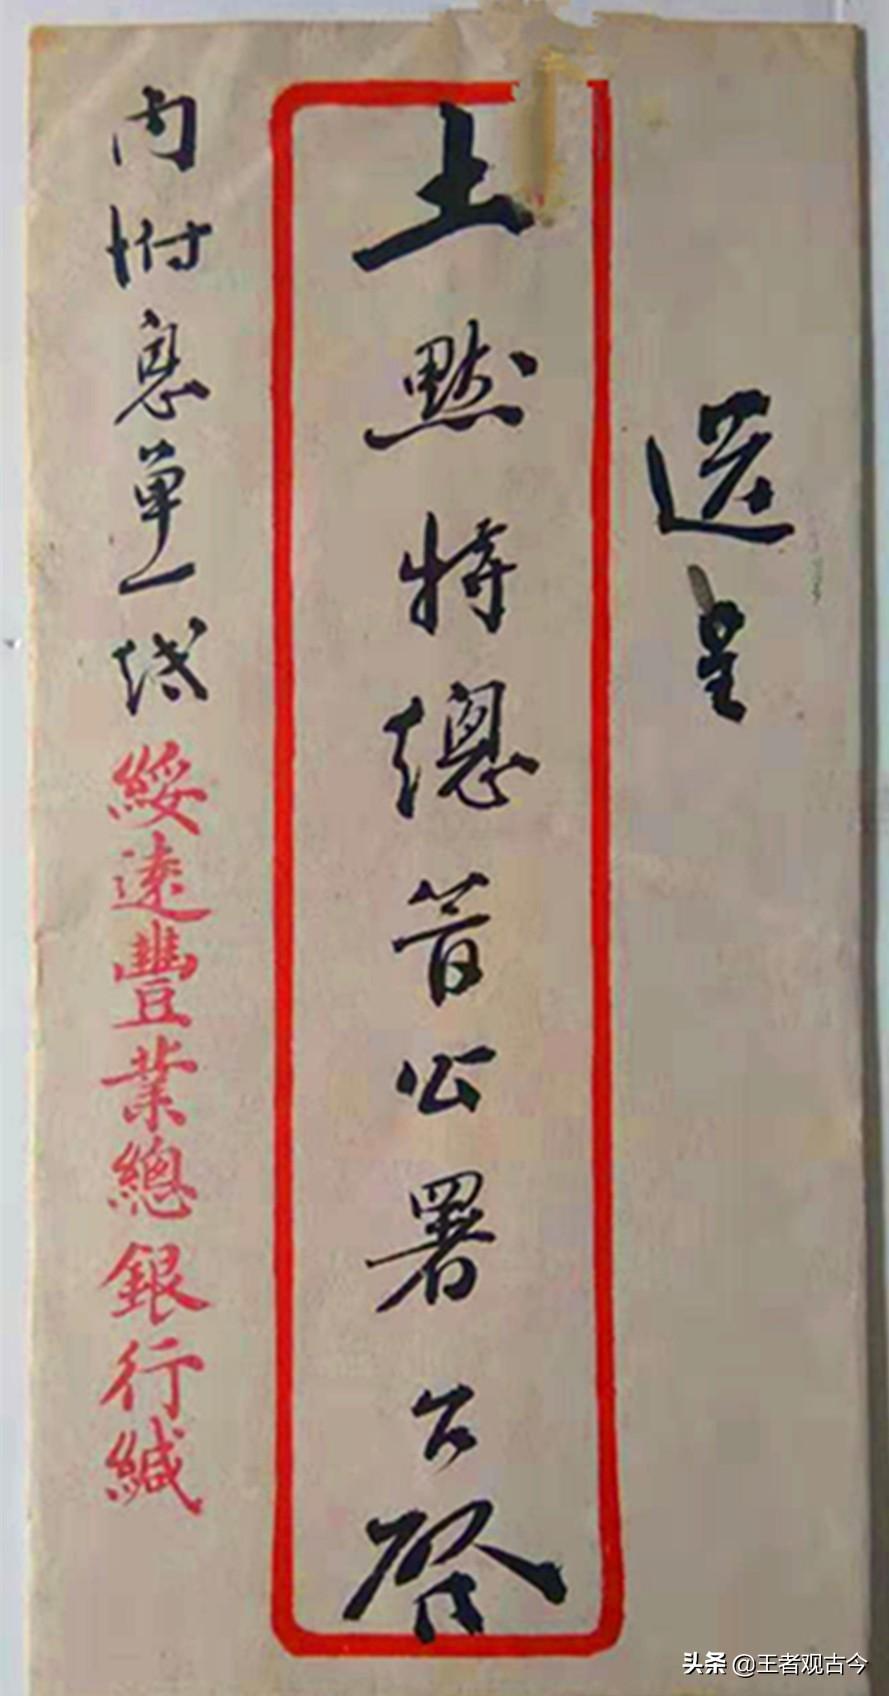 送呈
土黙特總管公署公啓
内附息单一紙
綏遠豐業總銀行緘
头条 @王者观古今